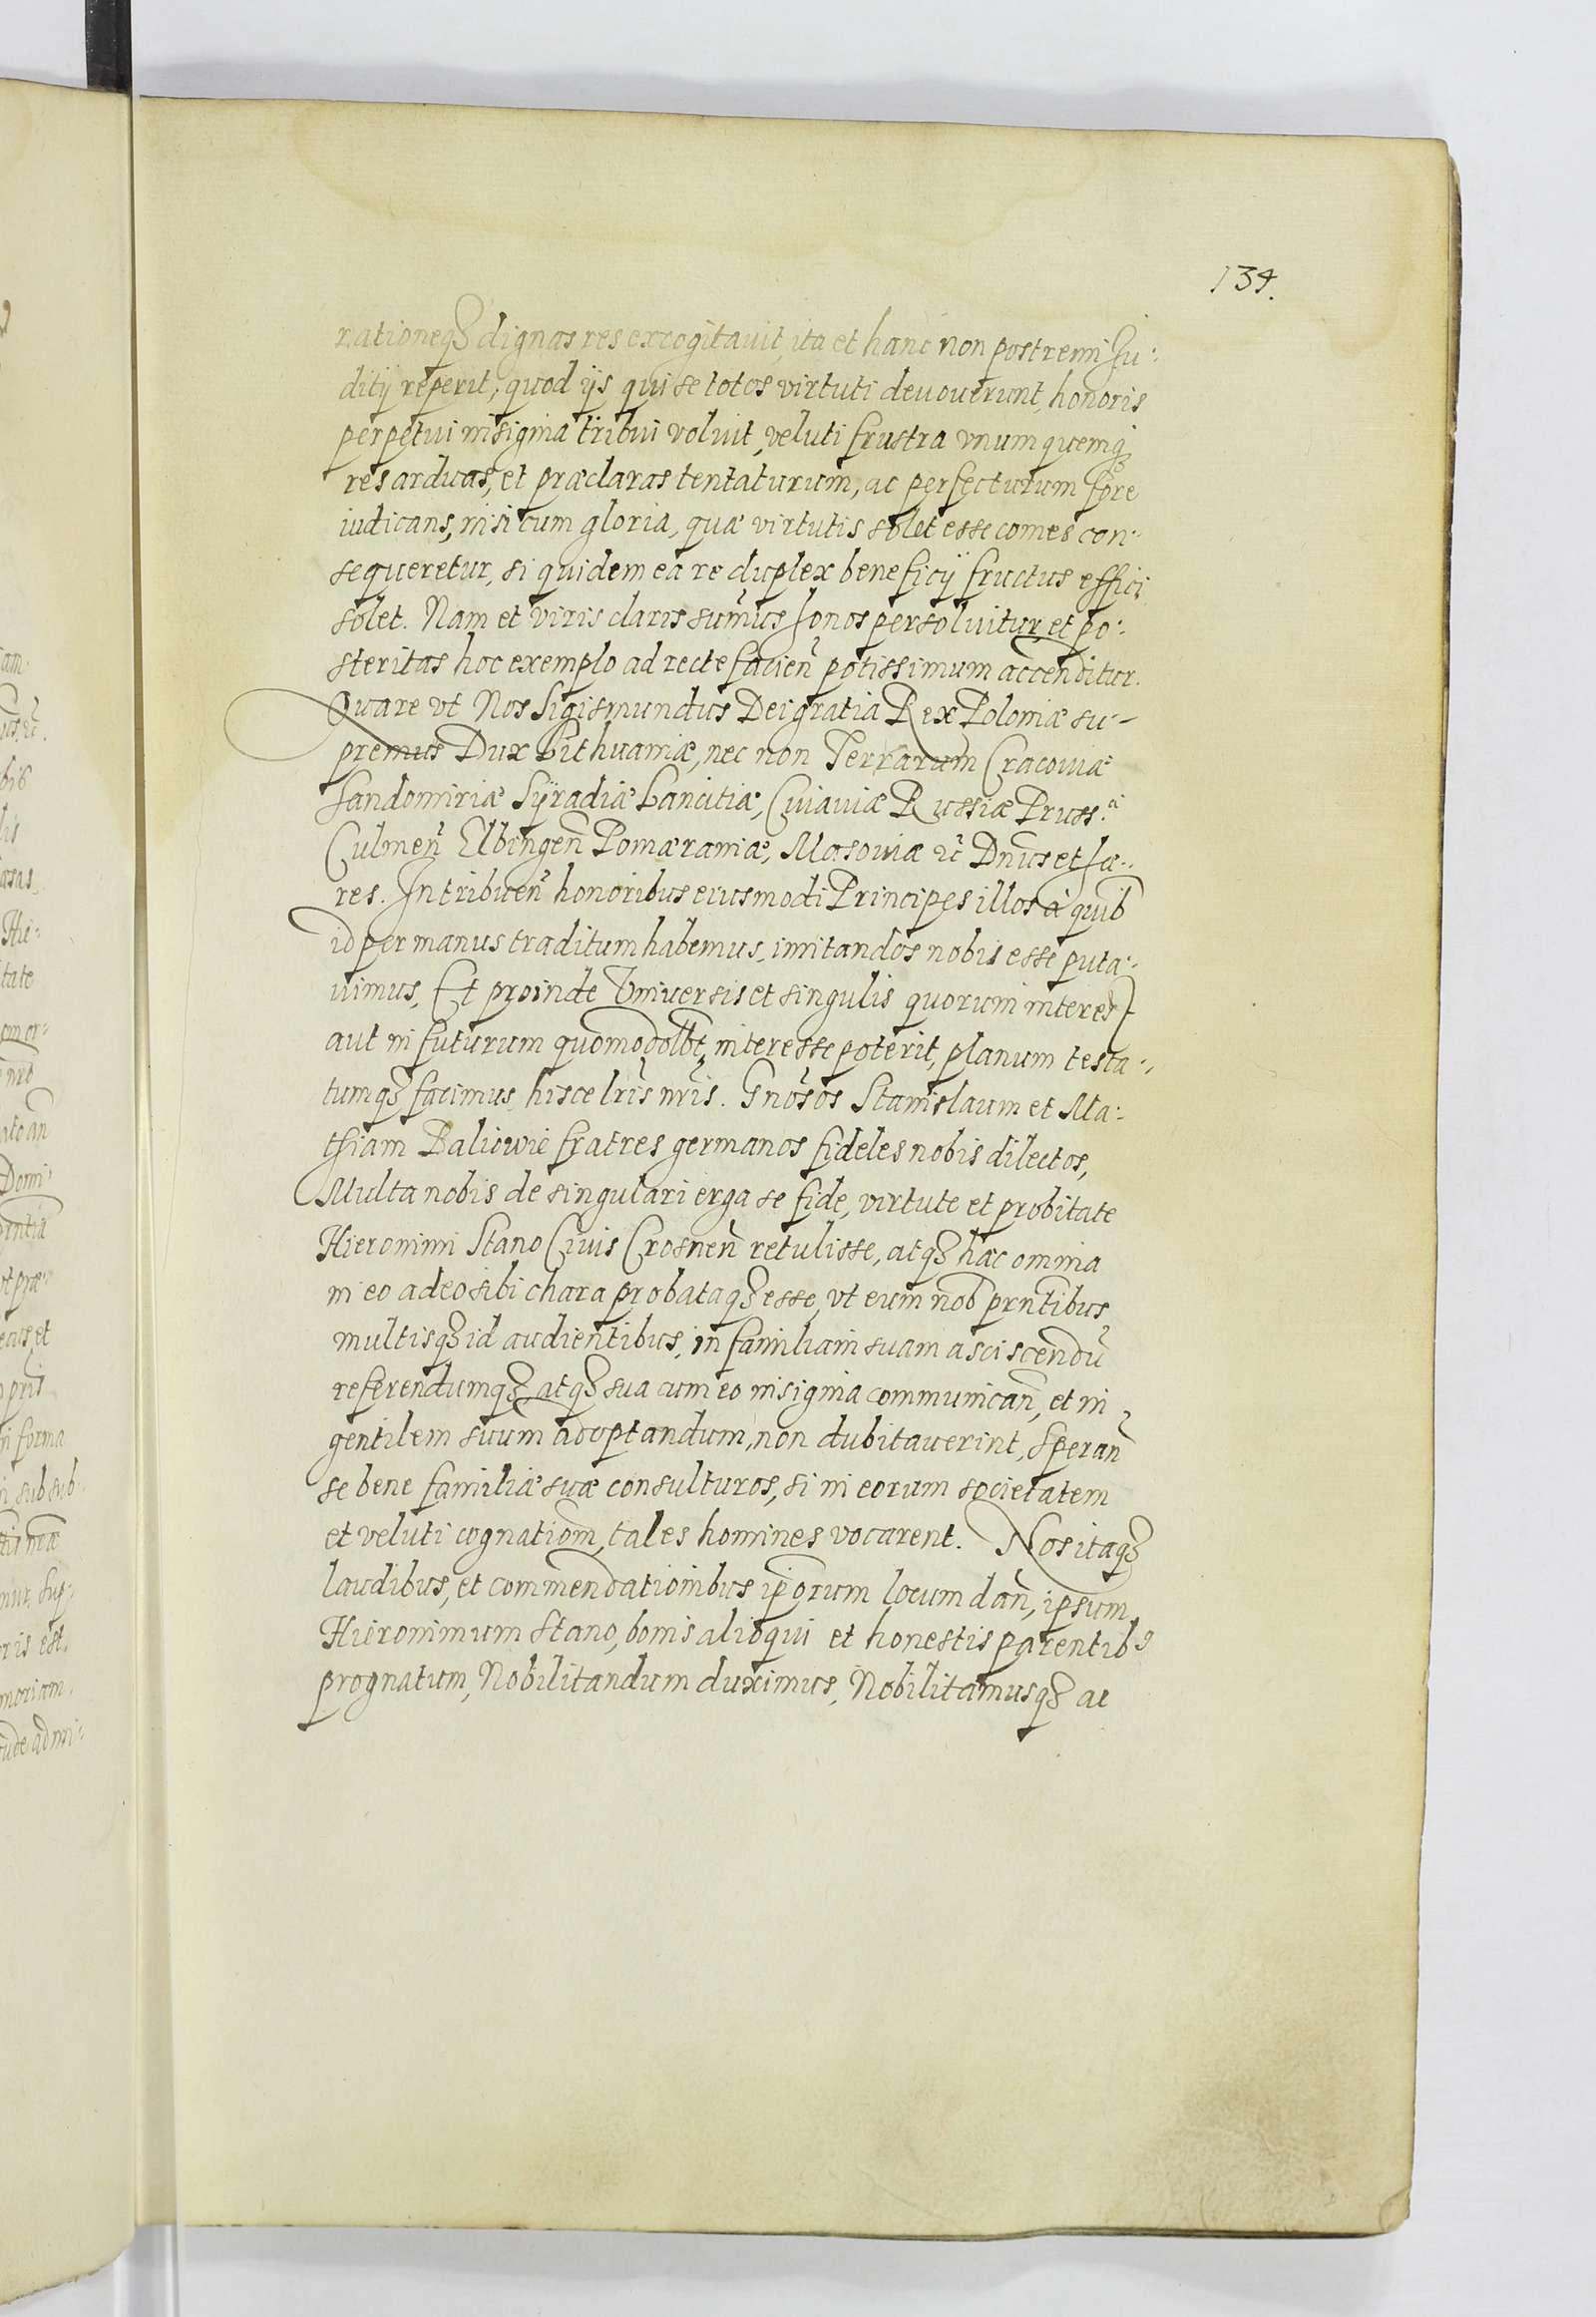 134.
rationeq3 dignas res excogitauit, ita et hanc non postremi Ju:
ditij reperit, quod ijs qui se totos virtuti deuouerunt, honoris
perpetui insignia tribui voluit, veluti frustra vnum quemq3
res arduas, et præclaras tentaturum, ac perfecturum fore
iudicans, nisi cum gloria, quæ virtutis solet esse comes con:
sequeretur, si quidem ea re duplex beneficij fructus effici
solet. Nam et viris claris sum̃us honos persoluitur et po:
steritas hoc exemplo ad recte facien̄ potissimum accenditur.
Quare vt Nos Sigismundus Dei gratia Rex Poloniæ su:
premus Dux Lithuaniæ, nec non Terrarum Cracouiæ
Sandomiriæ Syradiæ Lancitiæ, Cuiauiæ Russiæ Pruss:æ
Culmen̄ Elbingen̄ Pomæraniæ, Masouiæ ꝛc̄ Dn̄us et hæ:
res. In tribuen̄ honoribus eiusmodi Principes illos à quib
id per manus traditum habemus, imitandos nobis esse puta:
uimus, Et proinde Vniuersis et singulis quorum interest
aut in futurum quomodolb̄t, interesse poterit, planum testa:
tumq3 facimus hisce lr̄is nr̄is. Gnōsos Stanislaum et Ma:
thiam Baliowie fratres germanos fideles nobis dilectos,
Multa nobis de singulari erga se fide, virtute et probitate
Hieronimi Stano Ciuis Crosnen̄ retulisse, atq3 hæc omnia
in eo adeo sibi chara probataq3 esse, vt eum nob̄ prn̄tibus
multisq3 id audientibus, in familiam suam asciscendū
referendumq3 atq3 sua cum eo insignia communican̄, et in
gentilem suum adoptandum, non dubitauerint, Speran̄
se bene familiæ suæ consulturos, si in eorum societatem
et veluti cognatiom̄, tales homines vocarent. Nos itaq3
laudibus, et commendationibus ip̄orum locum dan̄, ipsum
Hieronimum Stano, bonis alioqui et honestis parentib9
prognatum, Nobilitandum duximus, Nobilitamusq3 ac